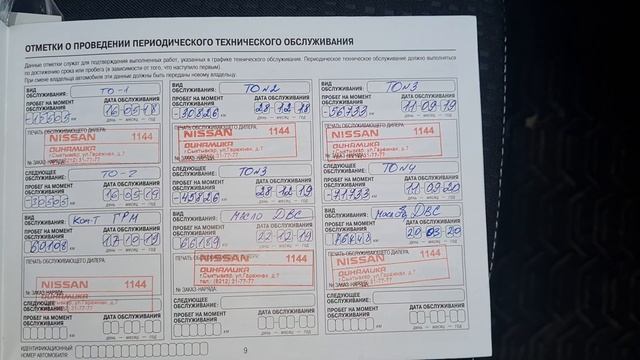 ОТМЕТКИ О ПРОВЕДЕНИИ ПЕРИОДИЧЕСКОГО ТЕХНИЧЕСКОГО ОБСЛУЖИВАНИЯ
Данные отметки служат для подтверждения выполненных работ, указанных в графике технического обслуживания. Периодическое техническое обслуживание должно выполняться
по достижению срока или пробега (в зависимости от того, что наступило первым).
При смене владельца автомобиля эти данные должны быть переданы новому владельцу.
ВИД ОБСЛУЖИВАНИЯ: ТО-1
ПРОБЕГ НА МОМЕНТ ОБСЛУЖИВАНИЯ ДАТА ОБСЛУЖИВАНИЯ
15505 км 16 05 18
день – месяц – год
ПЕЧАТЬ ОБСЛУЖИВАЮЩЕГО ДИЛЕРА:
NISSAN 1144
ДИНАМИКА
г.Сыктывкар, ул.Гаражная, д.7
№ ЗАКАЗ-НАРЯДА:
СЛЕДУЮЩЕЕ ОБСЛУЖИВАНИЕ: ТО-2
ПРОБЕГ НА МОМЕНТ ОБСЛУЖИВАНИЯ ДАТА ОБСЛУЖИВАНИЯ
30505 км 16 05 19
день – месяц – год
ВИД ОБСЛУЖИВАНИЯ: ТО№2
ПРОБЕГ НА МОМЕНТ ОБСЛУЖИВАНИЯ ДАТА ОБСЛУЖИВАНИЯ
30826 км 28 12 18
день – месяц – год
ПЕЧАТЬ ОБСЛУЖИВАЮЩЕГО ДИЛЕРА:
NISSAN 1144
ДИНАМИКА
г.Сыктывкар, ул.Гаражная, д.7
№ ЗАКАЗ-НАРЯДА:
СЛЕДУЮЩЕЕ ОБСЛУЖИВАНИЕ: ТО№3
ПРОБЕГ НА МОМЕНТ ОБСЛУЖИВАНИЯ ДАТА ОБСЛУЖИВАНИЯ
45826 км 28 12 19
день – месяц – год
ВИД ОБСЛУЖИВАНИЯ: ТО№3
ПРОБЕГ НА МОМЕНТ ОБСЛУЖИВАНИЯ ДАТА ОБСЛУЖИВАНИЯ
56733 км 11 09 19
день – месяц – год
ПЕЧАТЬ ОБСЛУЖИВАЮЩЕГО ДИЛЕРА:
NISSAN 1144
ДИНАМИКА
г.Сыктывкар, ул.Гаражная, д.7
№ ЗАКАЗ-НАРЯДА:
СЛЕДУЮЩЕЕ ОБСЛУЖИВАНИЕ: ТО№4
ПРОБЕГ НА МОМЕНТ ОБСЛУЖИВАНИЯ ДАТА ОБСЛУЖИВАНИЯ
71933 км 11 09 20
день – месяц – год
ВИД ОБСЛУЖИВАНИЯ: Кон-т ГРМ
ПРОБЕГ НА МОМЕНТ ОБСЛУЖИВАНИЯ ДАТА ОБСЛУЖИВАНИЯ
60108 км 17 10 19
день – месяц – год
ПЕЧАТЬ ОБСЛУЖИВАЮЩЕГО ДИЛЕРА:
NISSAN 1144
ДИНАМИКА
г.Сыктывкар, ул.Гаражная, д.7
СЛЕДУЮЩЕЕ ОБСЛУЖИВАНИЕ:
ПРОБЕГ НА МОМЕНТ ОБСЛУЖИВАНИЯ ДАТА ОБСЛУЖИВАНИЯ
день – месяц – год
ВИД ОБСЛУЖИВАНИЯ: МАСЛО ДВС
ПРОБЕГ НА МОМЕНТ ОБСЛУЖИВАНИЯ ДАТА ОБСЛУЖИВАНИЯ
66189 км 22 12 19
день – месяц – год
ПЕЧАТЬ ОБСЛУЖИВАЮЩЕГО ДИЛЕРА:
NISSAN 1144
ДИНАМИКА
г.Сыктывкар, ул.Гаражная, д.7
тел.: (8212) 21-77-77
№ ЗАКАЗ-НАРЯДА:
СЛЕДУЮЩЕЕ ОБСЛУЖИВАНИЕ:
ПРОБЕГ НА МОМЕНТ ОБСЛУЖИВАНИЯ ДАТА ОБСЛУЖИВАНИЯ
км день – месяц – год
ВИД ОБСЛУЖИВАНИЯ: ДВС
ПРОБЕГ НА МОМЕНТ ОБСЛУЖИВАНИЯ ДАТА ОБСЛУЖИВАНИЯ
76448 км 20 03 20
день – месяц – год
ПЕЧАТЬ ОБСЛУЖИВАЮЩЕГО ДИЛЕРА:
NISSAN 1144
ДИНАМИКА
г.Сыктывкар, ул.Гаражная, д.7
№ ЗАКАЗ-НАРЯДА:
СЛЕДУЮЩЕЕ ОБСЛУЖИВАНИЕ:
ПРОБЕГ НА МОМЕНТ ОБСЛУЖИВАНИЯ ДАТА ОБСЛУЖИВАНИЯ
км день – месяц – год
ИДЕНТИФИКАЦИОННЫЙ НОМЕР АВТОМОБИЛЯ:
9